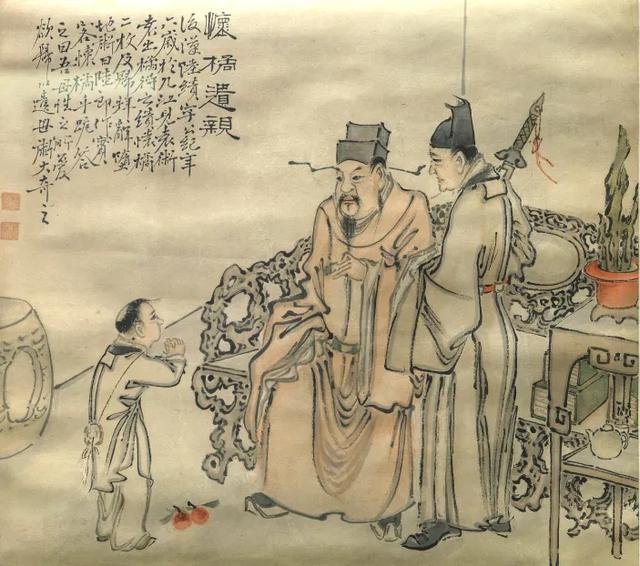 懷橘遺親
後漢陸績字公紀年
六歲於九江見袁術
袁出橘待之績懷橘
二枚及歸拜辭墮
地術曰陸郎作賓
客懷橘乎跪答
之曰吾母性之所愛
欲歸以遺母術大奇之